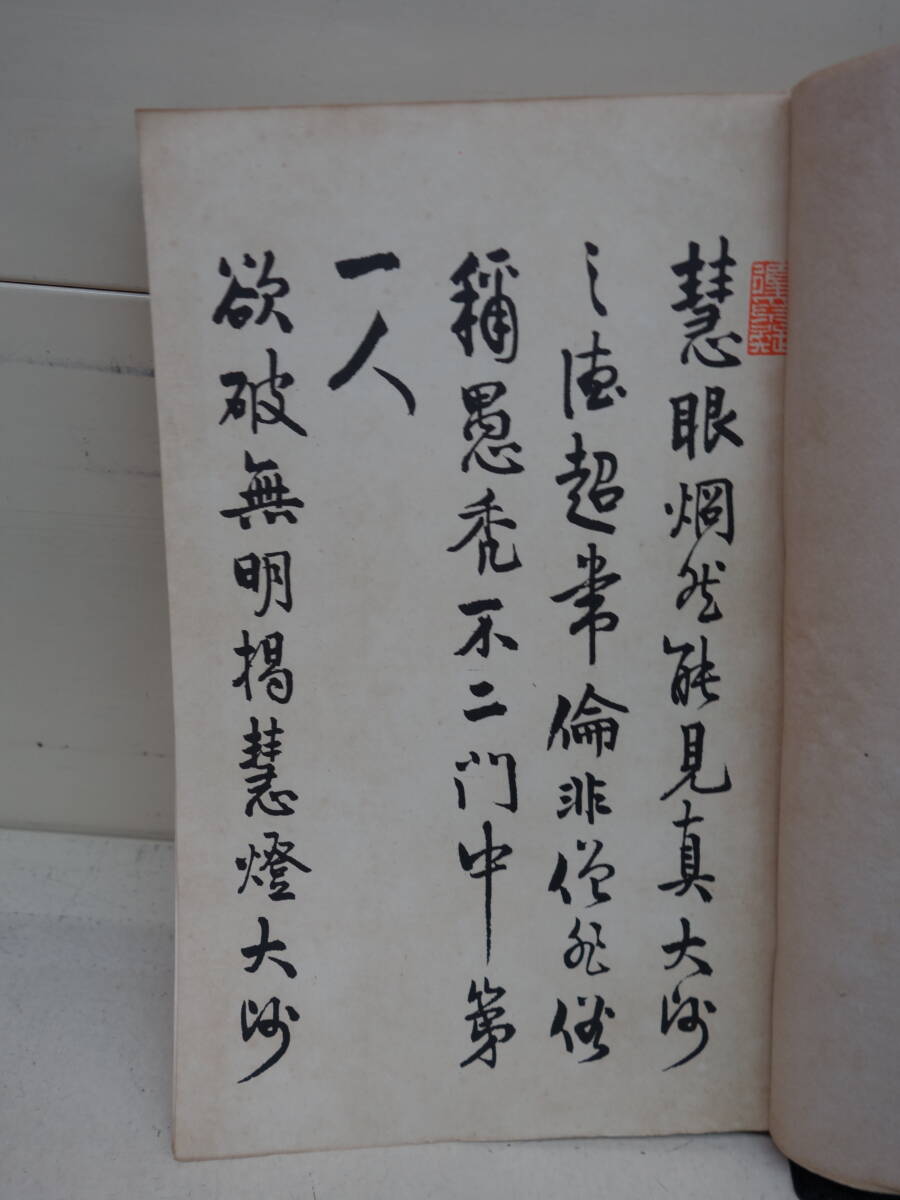 慧眼烱然能見真大師
之徳超常倫非僧非俗
稱愚禿不二門中第
一人
欲破無明掲慧燈大師